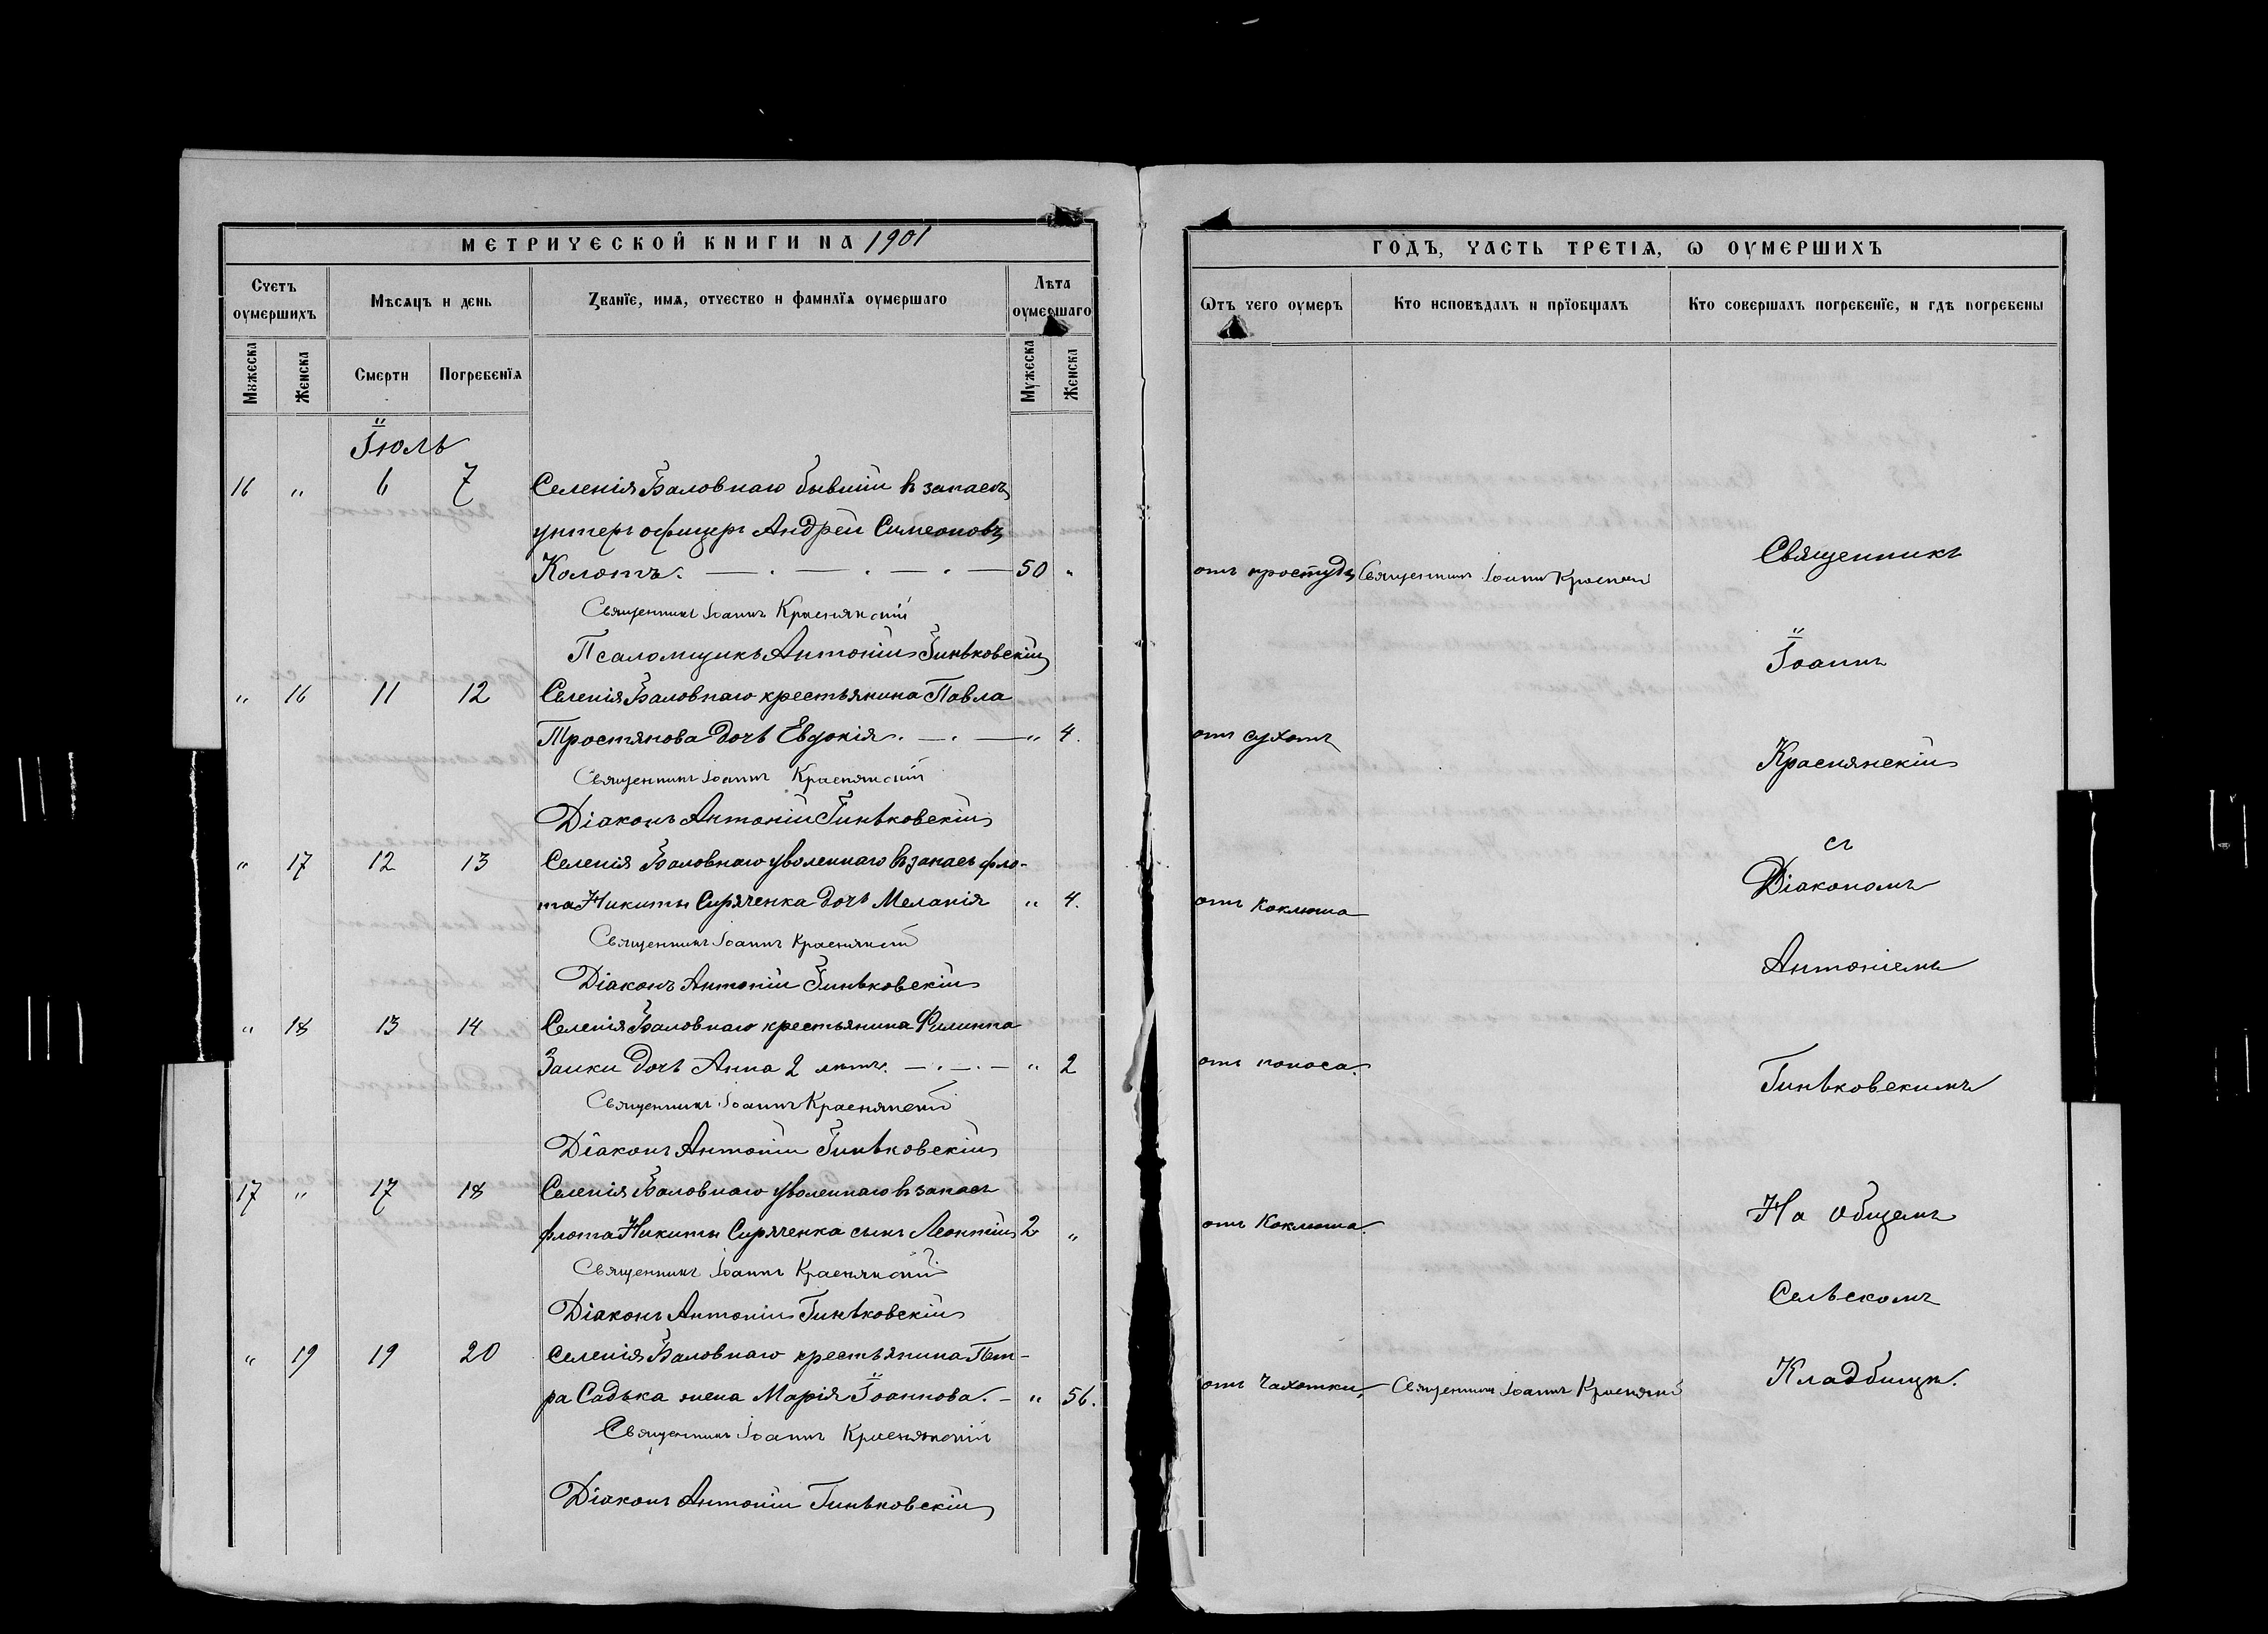 МЕТРИЧЕСКОЙ КНИГИ НА 1901
Счетъ оумершихъ
Мѣсяцъ и день
Званїе, имя, отчество и фамилїя оумершаго
Лѣта оумершаго
Мужеска
Женска
Смерти
Погребенїя
Мужеска
Женска
Іюль
16 " 6 7 Селенія Баловнаго бывшій въ запасѣ
унтеръ офицеръ Андрей Симеоновъ
Колотъ. 50 "
Священникъ Іоаннъ Краснянскій
Псаломщикъ Антоній Гинѣковскій
" 16 11 12 Селенія Баловнаго крестьянина Павла
Тростянова дочь Евдокія. " 4.
Священникъ Іоаннъ Краснянскій
Діаконъ Антоній Гинѣковскій
" 17 12 13 Селенія Баловнаго уволеннаго въ запасъ фло-
та Никиты Сиряченка дочь Меланія " 4.
Священникъ Іоаннъ Краснянскій
Діаконъ Антоній Гинѣковскій
" 18 13 14 Селенія Баловнаго крестьянина Филиппа
Заики дочь Анна 2 лѣтъ. " 2
Священникъ Іоаннъ Краснянскій
Діаконъ Антоній Гинѣковскій
17 " 17 18 Селенія Баловнаго уволеннаго въ запасъ
флота Никиты Сиряченка сынъ Леонтій 2 "
Священникъ Іоаннъ Краснянскій
Діаконъ Антоній Гинѣковскій
" 19 19 20 Селенія Баловнаго крестьянина Пет-
ра Садька жена Марія Іоаннова. " 56.
Священникъ Іоаннъ Краснянскій
Діаконъ Антоній Гинѣковскій
ГОДЪ, ЧАСТЬ ТРЕТІЯ, Ѡ ОУМЕРШИХЪ
Ѡтъ чего оумеръ
Кто исповѣдалъ и прїобщалъ
Кто совершалъ погребенїе, и гдѣ погребены
отъ простуды Священникъ Іоаннъ Краснянскій
отъ сухотъ
отъ коклюша
отъ поноса.
отъ коклюша.
отъ чахотки. Священникъ Іоаннъ Краснянскій
Священникъ
Іоаннъ
Краснянскій
съ
Діакономъ
Антоніемъ
Гинѣковскимъ
На общемъ
Сельскомъ
Кладбищѣ.